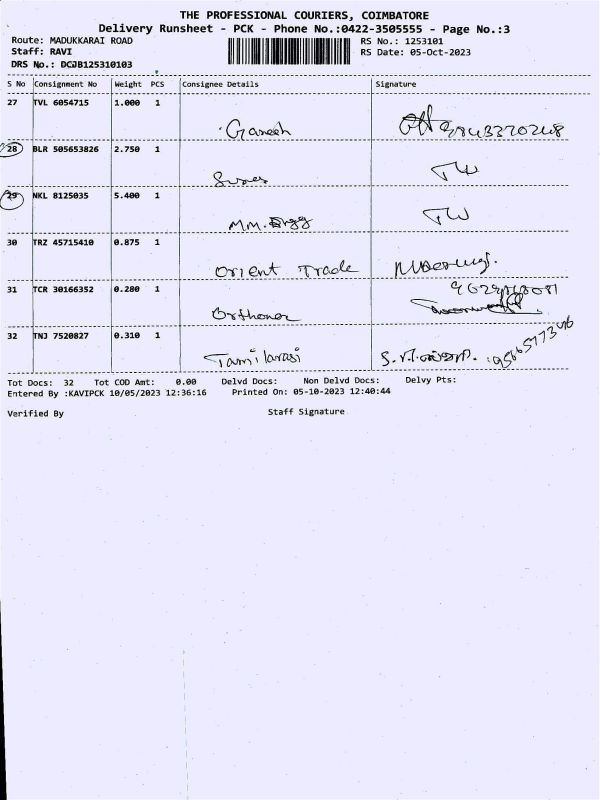 THE PROFESSIONAL COURIERS, COIMBATORE
Delivery Runsheet - PCK - Phone No.:0422-3505555 - Page No.:3
Route: MADUKKARAI ROAD RS No.: 1253101
Staff: RAVI RS Date: 05-Oct-2023
DRS No.: DCJB125310103
S No Consignment No Weight PCS Consignee Details Signature
27 TVL 6054715 1.000 1
Ganesh 9843320248
28 BLR 505653826 2.750 1
TW
29 NKL 8125035 5.400 1
MM. TW
30 TRZ 45715410 0.875 1
Orient Trade
31 TCR 30166352 0.280 1
32 TNJ 7520827 0.310 1
Tamilarasi
Tot Docs: 32 Tot COD Amt: 0.00 Delvd Docs: Non Delvd Docs: Delvy Pts:
Entered By :KAVIPCK 10/05/2023 12:36:16 Printed On: 05-10-2023 12:40:44
Verified By Staff Signature